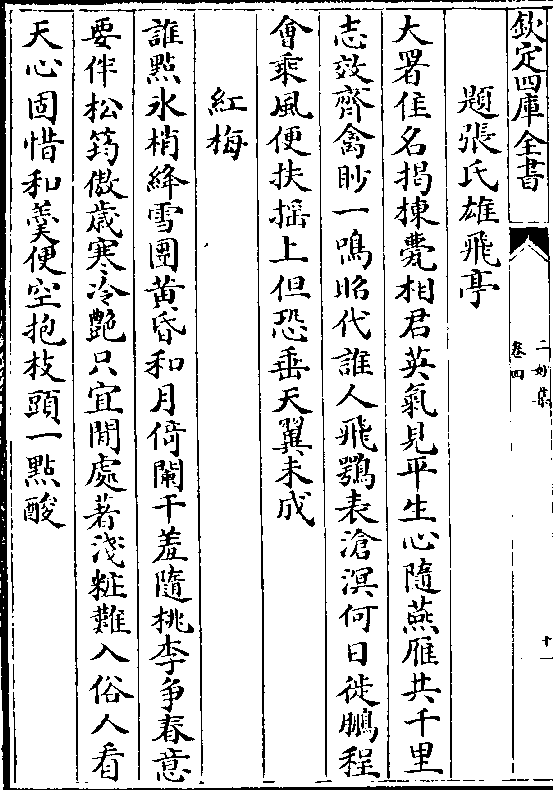 欽定四庫全書
二妙集
卷四
十一
題張氏雄飛亭
大署佳名揭棟甍相君英氣見平生心隨燕雁共千里
志效齊禽眇一鳴昭代誰人飛鶚表滄溟何日徙鵬程
會乘風便扶搖上但恐垂天翼未成
紅梅
誰㸃氷梢絳雪團黄昏和月倚闌干羞隨桃李爭春意
要伴松筠傲歳寒冷艶只宜閒處著淺粧難入俗人看
天心固惜和羹便空抱枝頭一點酸